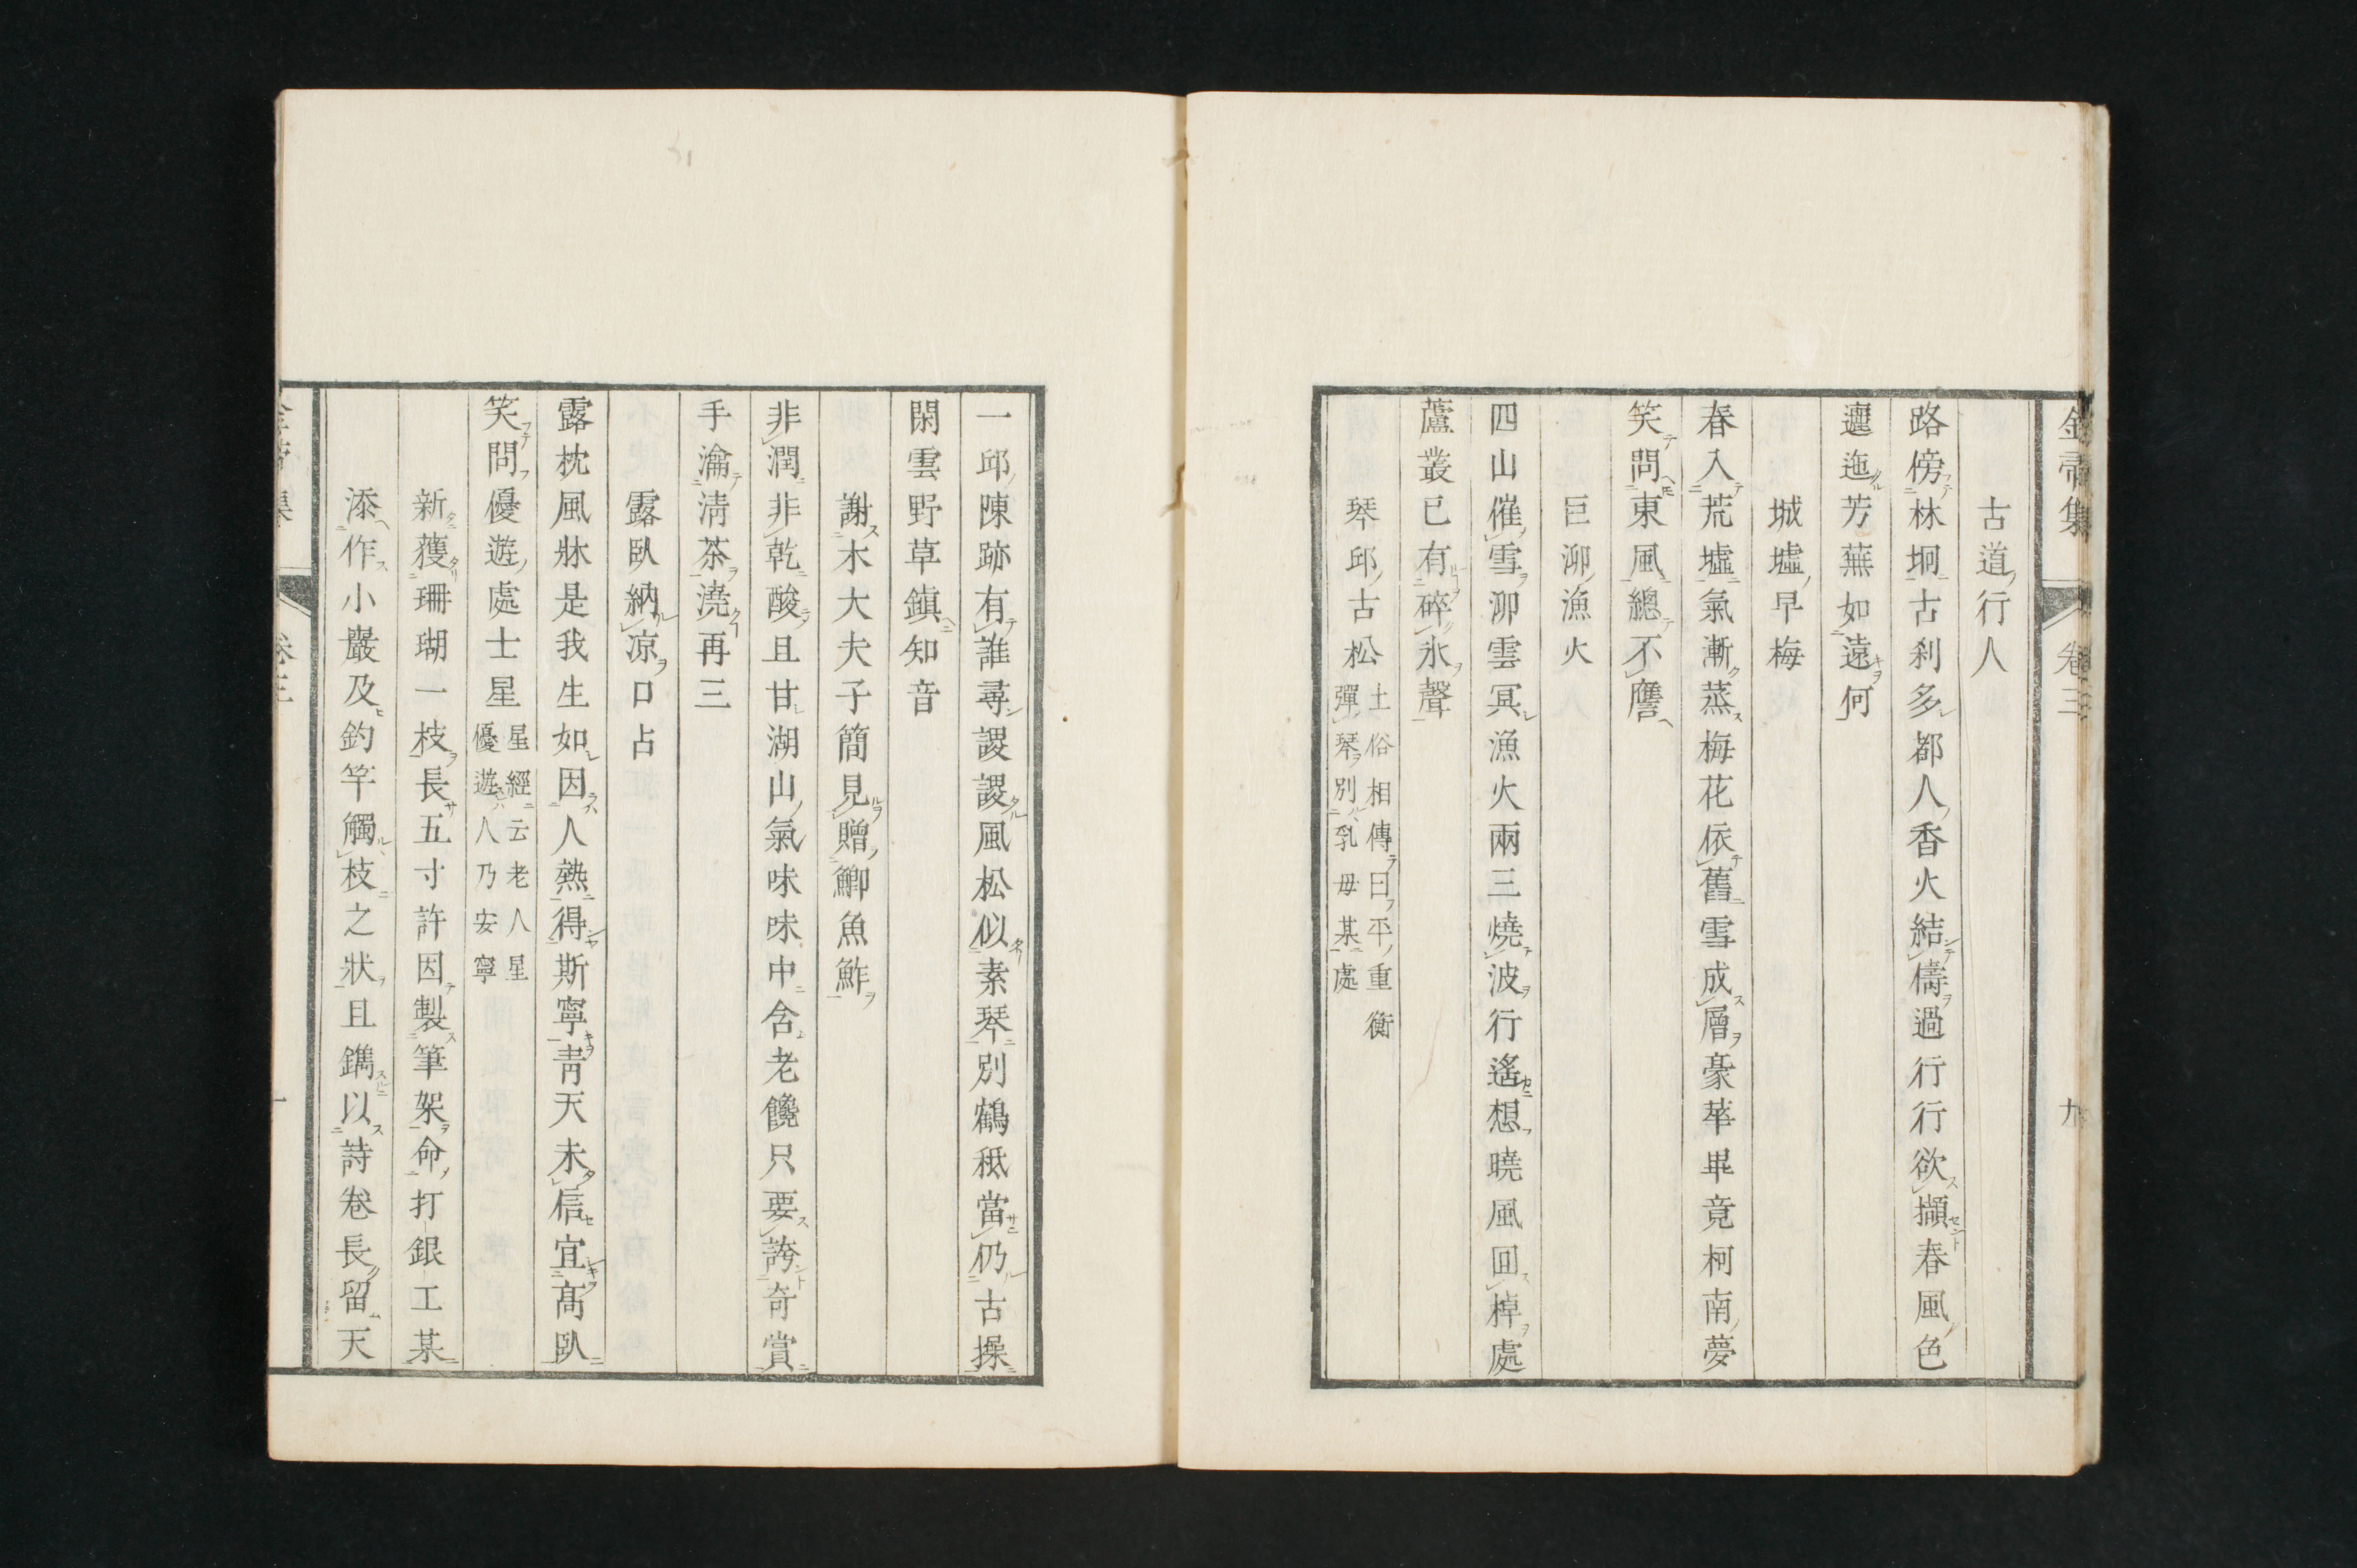 金帚集
卷三
九
古道行人
路傍林坰古刹多都人香火結儔過行行欲擷春風色
邐迤芳蕪如遠何
城墟早梅
春入荒墟氣漸蒸梅花依舊雪成層豪華畢竟柯南夢
笑問東風總不譍
巨泖漁火
四山催雪泖雲冥漁火兩三燒波行遙想曉風回棹處
蘆叢已有碎氷聲
琴邱古松
土俗相傳曰平重衡
彈琴別乳母某處
一邱陳跡有誰尋謖謖風松似素琴別鶴秖當仍古操
閑雲野草鎮知音
謝木大夫子簡見贈鯽魚鮓
非潤非乾酸且甘湖山氣味味中含老饞只要誇奇賞
手瀹淸茶澆再三
露臥納凉口占
露枕風牀是我生如因人熱得斯寧靑天未信宜高臥
笑問優遊處士星
星經云老人星
優遊人乃安寧
新獲珊瑚一枝長五寸許因製筆架命打銀工某
添作小巖及釣竿觸枝之狀且鐫以詩卷長留天